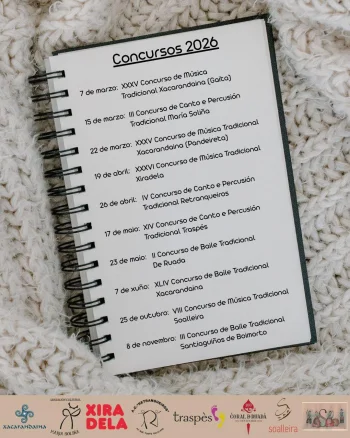 Concursos 2026
7 de marzo: XXXV Concurso de Música
Tradicional Xacarandaina (Gaita)
15 de marzo: III Concurso de Canto e Percusión
Tradicional María Soliña
22 de marzo: XXXV Concurso de Música Tradicional
Xacarandaina (Pandeireta)
19 de abril: XXXVI Concurso de Música Tradicional
Xiradela
26 de abril: IV Concurso de Canto e Percusión
Tradicional Retranqueiros
17 de maio: XIV Concurso de Canto e Percusión
Tradicional Traspés
23 de maio: II Concurso de Baile Tradicional
De Ruada
7 de xuño: XLIV Concurso de Baile Tradicional
Xacarandaina
25 de outubro: VIII Concurso de Música Tradicional
Soalleira
8 de novembro: III Concurso de Baile Tradicional
Santiaguiños de Boimorto
XACARANDAINA
XIRA
DELA
traspés
CORAL DE RUADA
soalleira